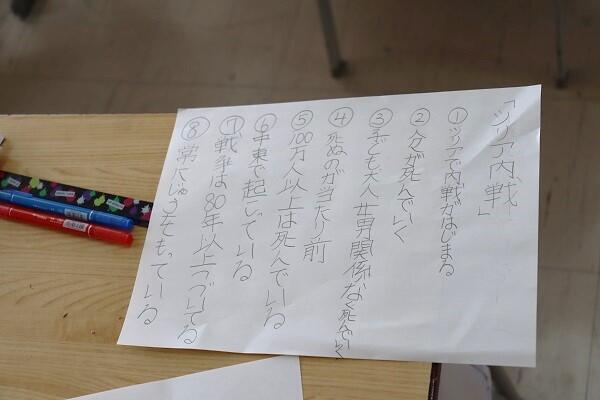 「シリア内戦」
①シリアで内戦がはじまる
②人が死んでいく
③子ども大人女男関係なく死んでいく
④死ぬのが当たり前
⑤100万人以上は死んでいる
⑥中東で起こている
⑦戦争は80年以上つづいてる
⑧常にじゅうをもっている